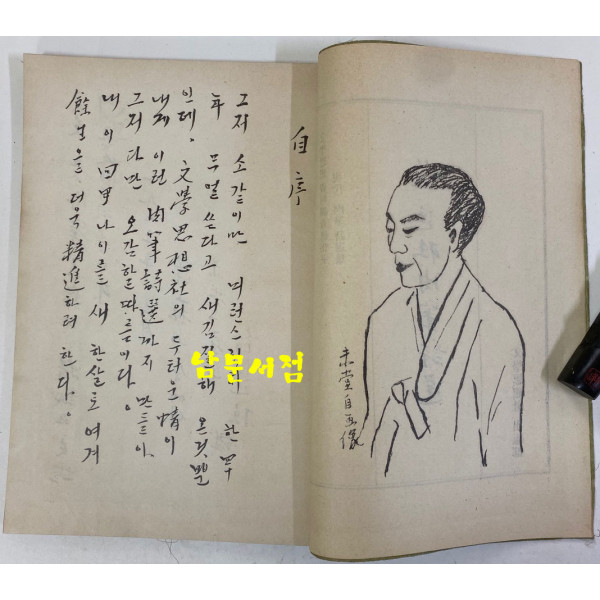 未堂自画像
自序
그저 소같이만 미련스 한 四十
年 무얼 쓰다고 새김질해 온것뿐
인데, 文學思想社의 두터운 情이
내게 이런 肉筆詩選까지 만드니
그저 다만 오감할따름이다.
내 이 回甲나이를 새 한살로 여겨
餘生을 더욱 精進하려 한다.
남문서점